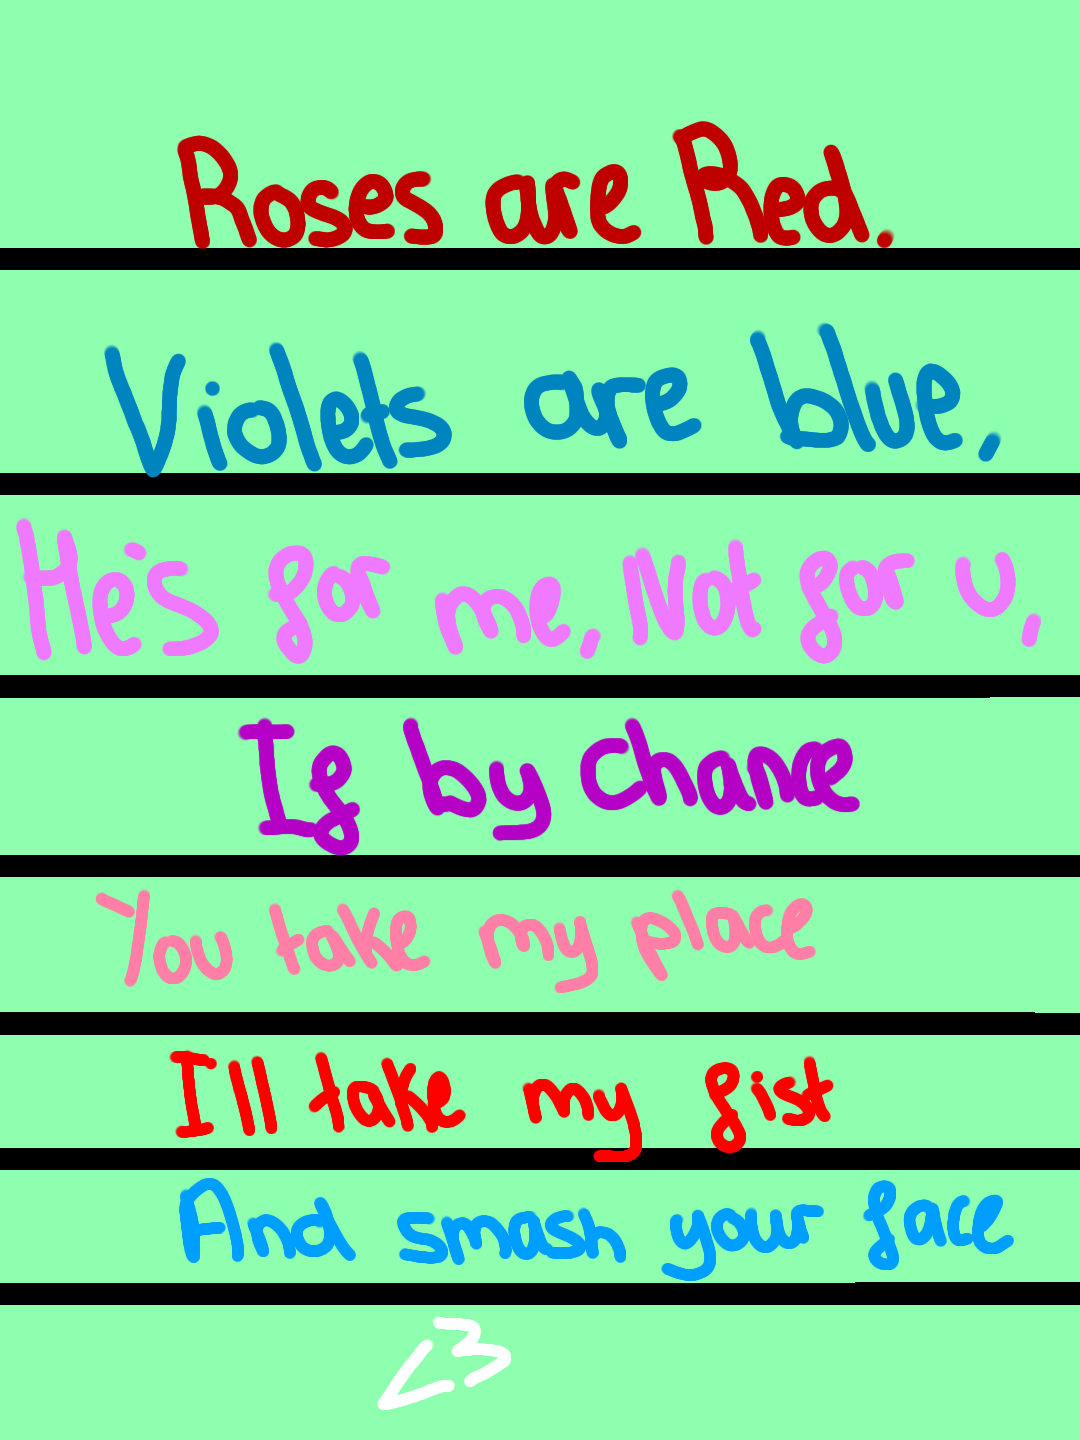 Roses are Red.
Violets are blue,
He's for me, Not for u,
If by chance
You take my place
I'll take my fist
And smash your face
<3